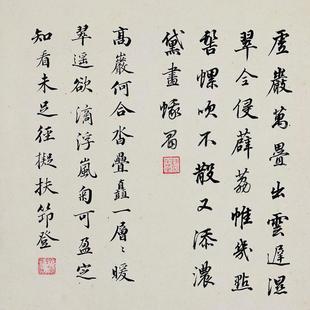 虛巖萬疊出雲遲濕
翠全侵薜荔帷幾點
髻螺吹不散又添濃
黛畫蛾眉
高巖何合沓疊矗一層〻暖
翠遙欲滴浮嵐匊可盈定
知看未足徑擬扶筇登